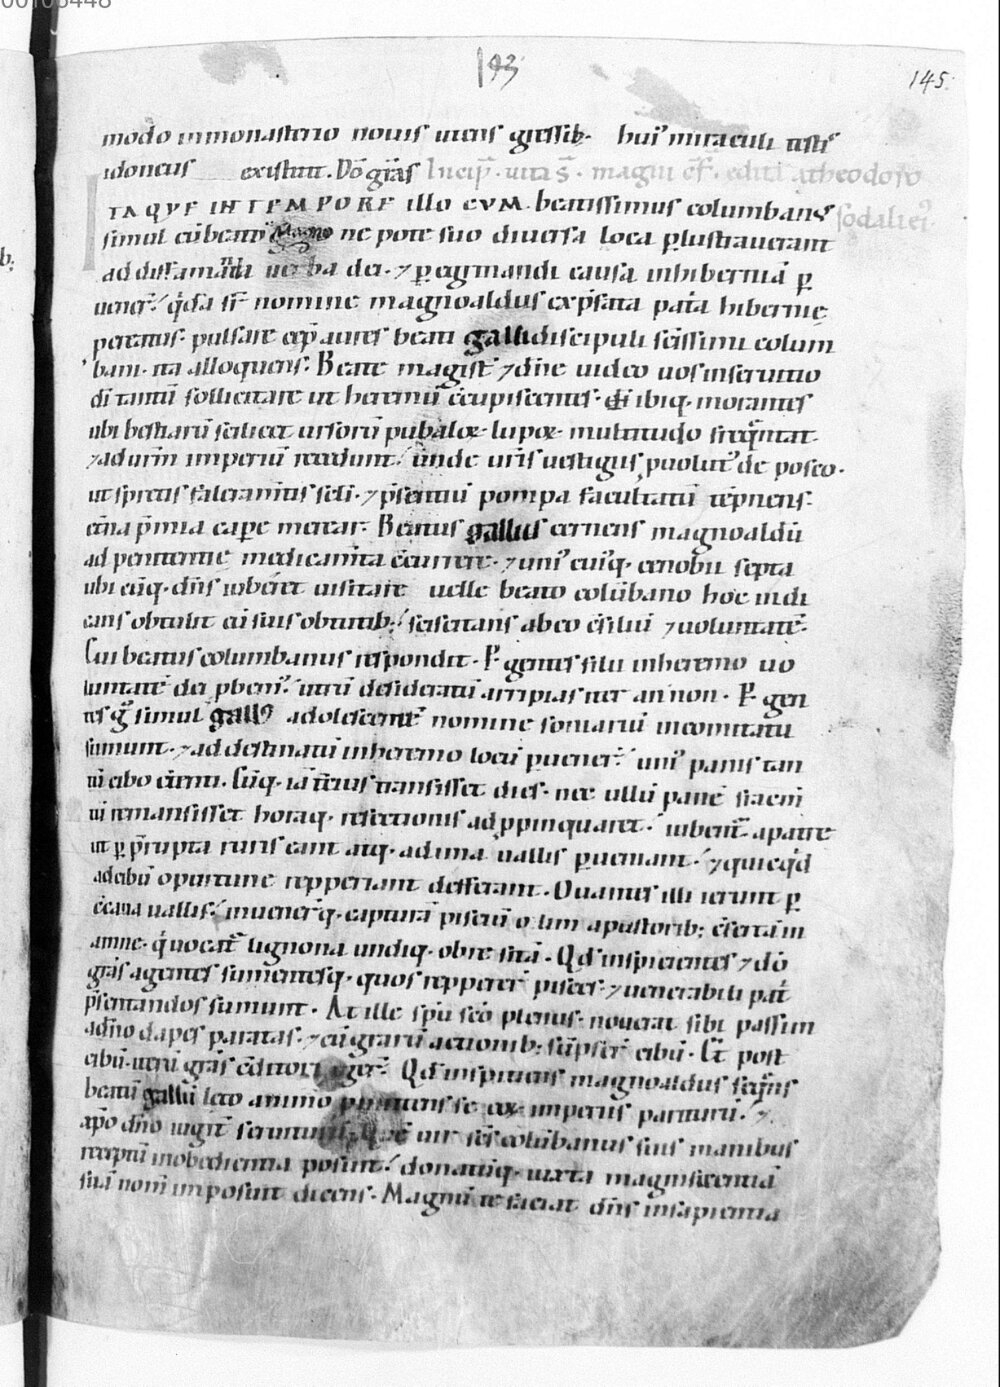 00106448
193
145.
modo inmonasterio nouis utens gressib; hui' miraculi testis
idoneus existunt. Dō grās Incip̄. uita S̄. magni c̄f. edita atheodoro
ITAQVE IN TEMPORE illo CVM. beatissimus columbanus sodali ei'.
simul cū beato Magno ne pote suo diuersa loca plustrauerant
ad diffamanda uerba dei. ⁊ peregrinandi causa inhiberniā p
uener̄. qđā fr̄ nomine magnoaldus exp̄sata pat'a hibernię
peteretus. pulsare cep̄ aures beati galli discipuli scīssimi colum
bani. ita alloquens. Beate magist' ⁊ dn̄e uideo uos inseruitio
dī tantū sollicitare ut heremū c̄cupiscentes. & ibiq. morantes
ubi bestiarū scilicet ursorū pubaloꝝ. lupoꝝ. multitudo freq̄ntat.
⁊ ad ur̄m imperiū recedunt. unde ur̄is uestigiis puolut' de posco.
ut spretis faleramtis scl̄i. ⁊ p̄sentiū pompa facultatū rep̄nens.
et̄na p̄mia cape merear. Beatus gallus cernens magnoaldū
ad penitentie medicam̄ta c̄currere. ⁊ uni' cui'q. cenobii septa
ubi cūq. dn̄s iuberet uisitare uelle beato colūbano hoc indi
cans obtulit ei suis obtutib; sciscitans ab eo c̄siliū ⁊ uoluntatē.
Cui beatus columbanus respondit. P gentes silii inheremo uo
luntatē dei pbem'. utrū desideratū arripias iter an non. P gen
tes g' simul gallus adolescente nomine soniariū incomitatu
sumunt. ⁊ ad destinatū inheremo locū puener̄. uni' panis tan
tū cibo c̄tenti. Cūq. iā t̄cius transisset dies. nec ullū panē
tū remansisset horaq. refectionis ad ppinquaret. iubent' a patre
ut p p̄rupta ruris eant atq. ad ima uallis pueniant. ⁊ quicqđ
ad cibū oportune repperiant defferant. Quamuis illi ierunt p
c̄caua uallis. inuener̄q. capturā pisciū o lim apastorib; c̄sertā in
amne. q'uocat' lignona undiq. obre sitā. Qđ inspicientes ⁊ dō
grās agentes sumentesq. quos repperer̄ pisces. ⁊ uenerabili pat'
p̄sentandos sumunt. At ille spū scō plenus. nouerat sibi passim
a dn̄o dapes paratas. ⁊ cū grarū actionib; sūpser̄ cibū. Et post
cibū. utrū grās c̄ditori ager̄. Qđ inspiciens magnoaldus seq̄ns
beatū gallū leto animo pmittens se eoꝝ imperiis pariturū. ⁊
ap̄o dn̄o iugit' seruiturū. Quē uir scs̄ colūbanus suis manibus
receptū inobedientia posuit. donauitq. iuxta magnificentiā
suā nom̄ imposuit dicens. Magnū te faciat dn̄s insapientia